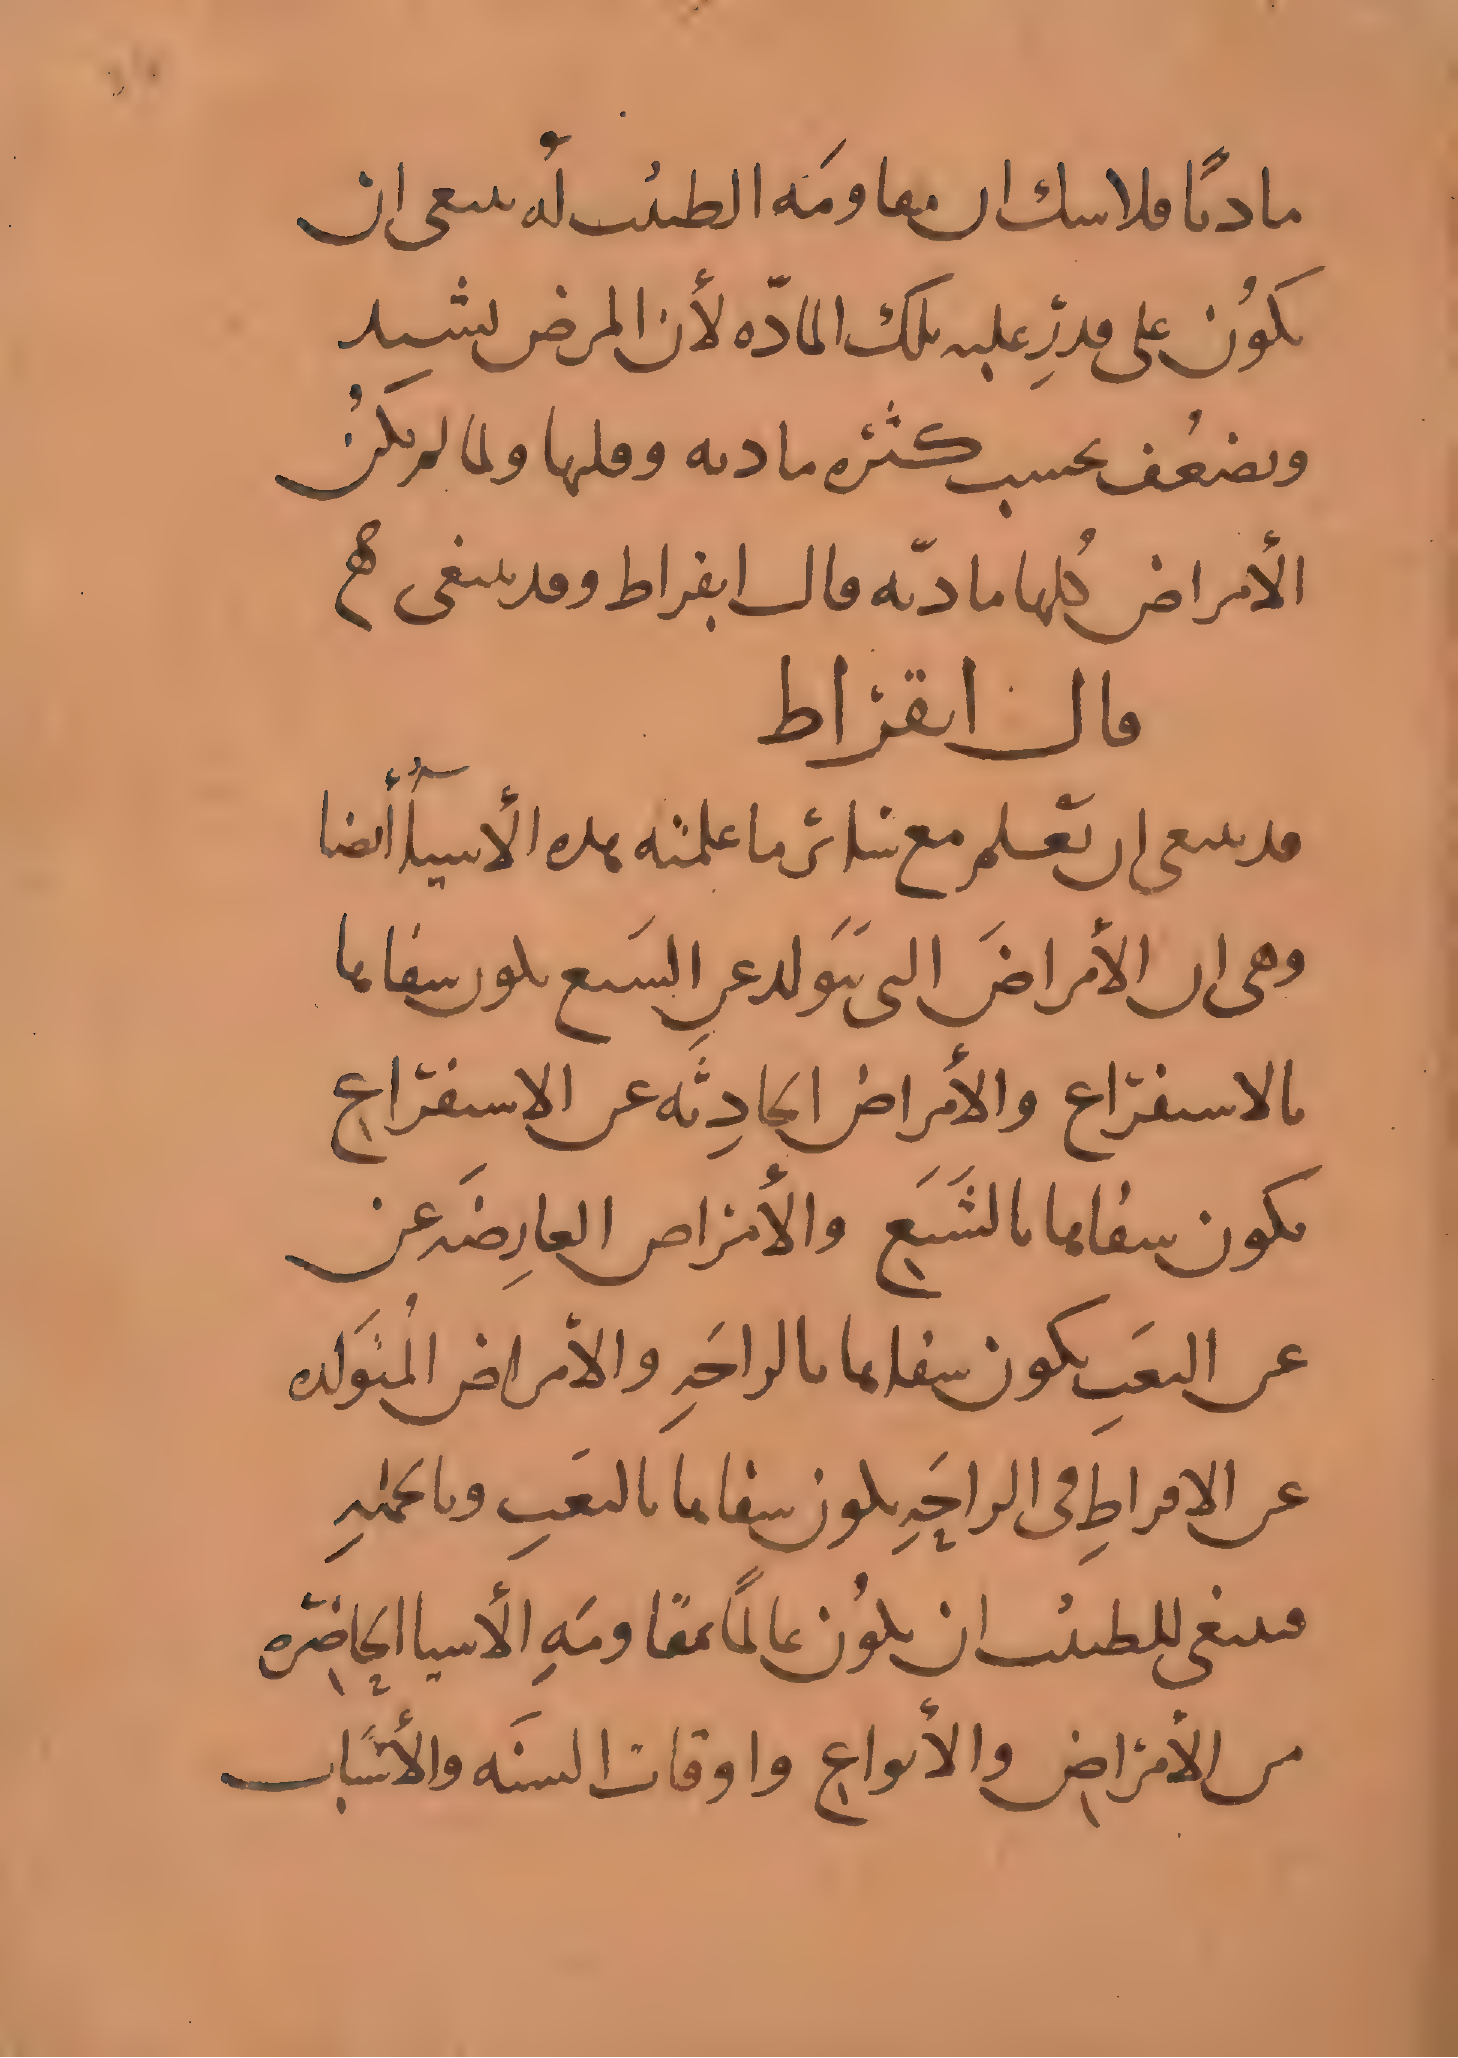 ماديًا فلا شك ان مقاومَه الطبيب لهُ ينبغى ان
يكوُن على قدرِ غلبه تلك المادّه لأن المرض يشتد
ويضعُف بحسب كثره مادته وقلتها ولما لم يكنُ
الأمراض كُلها ماديّه قال ابقراط وقد ينبغى
قال ابقراط
قد ينبغى ان تَعلم مع سائر ما علمته بهذه الأشيآء أيضا
وهى ان الأمراضَ التى تتَوَلد عنِ الشبَع يكون شفاها
بالاستفراغ والأمراض الحادِثَه عن الاستفراغ
يكون شفاها بالشَبَع والأمراض العارِضَه عن
عن التعَبِ يكون شفاها بالراحَهِ والأمراض المُتَولده
عن الافراطِ فى الراحَهِ يكون شفاها بالتعَبِ وبالجملهِ
فينبغى للطبيب ان يكوُن عالمًا بمقاومَهِ الأشيا الحاضره
من الأمراض والأنواع واوقات السنَه والأسَباب